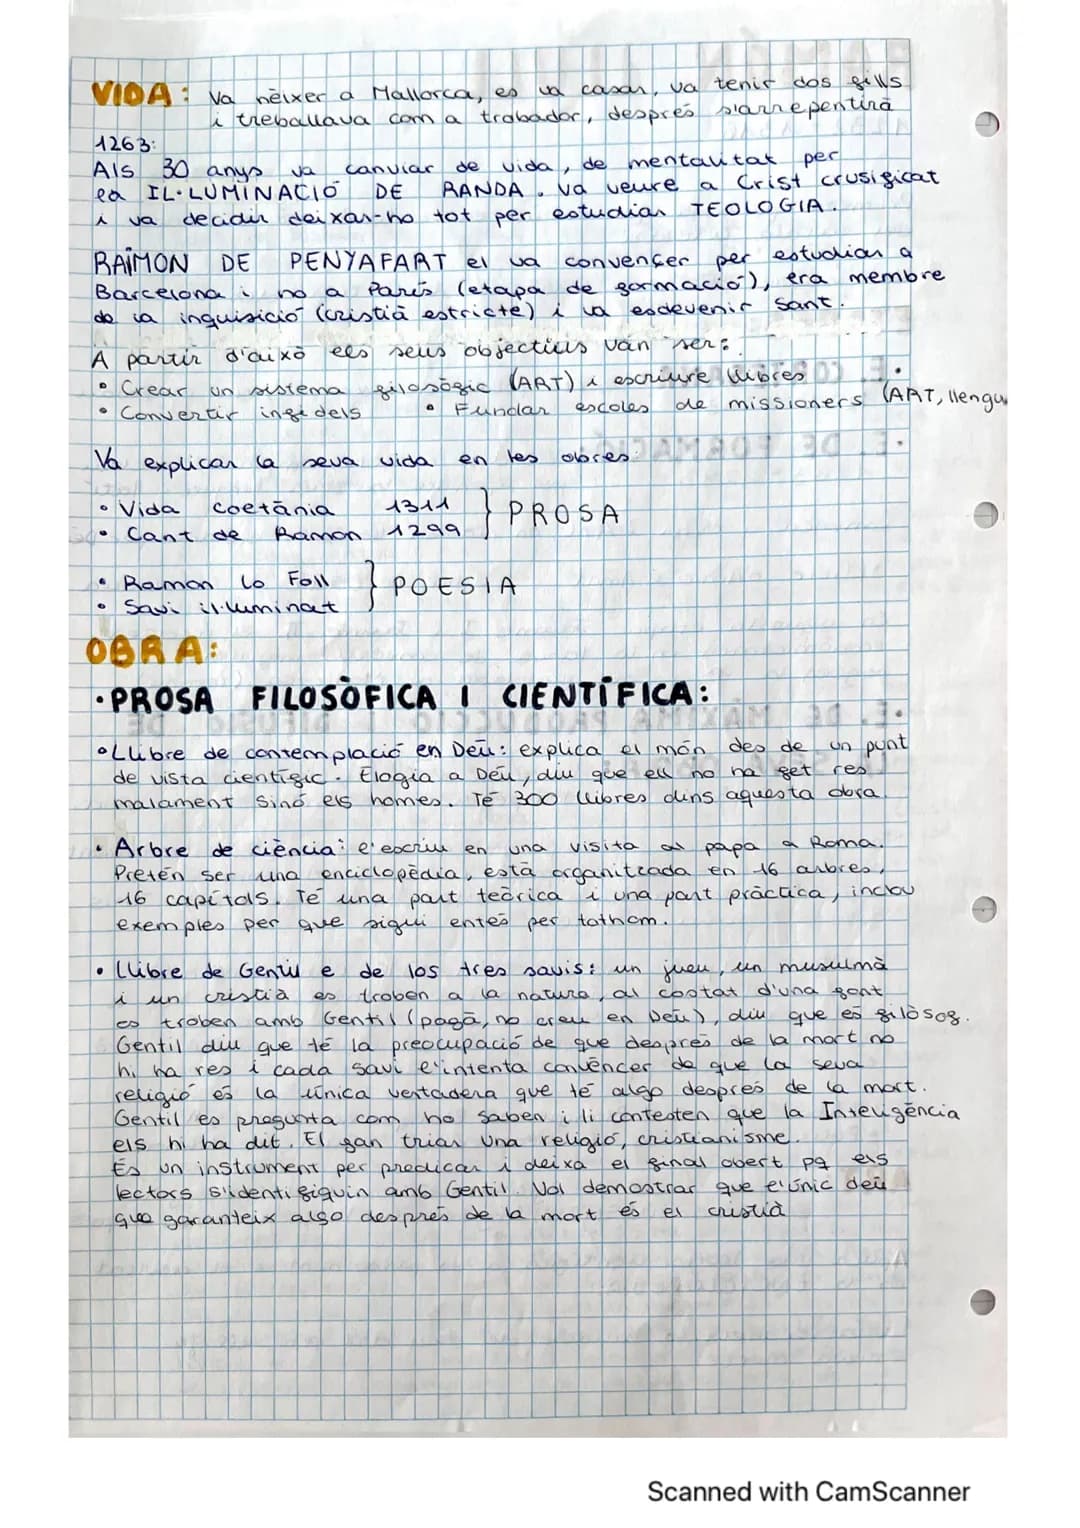 VIDA: Va nèixer a Mallorca, es va casar, va tenir dos fills
i treballava com a trobador, després s'arrepentirà
1263:
Als 30 anys va canviar de vida, de mentalitat per
la IL·LUMINACIÓ DE RANDA. Va veure a Crist crusificat
i va decidir deixar-ho tot per estudiar TEOLOGIA.
RAIMON DE PENYAFART el va convençer per estudiar a
Barcelona i no a París (etapa de formació), era membre
de la inquisició (cristià estricte) i va esdevenir sant.
A partir d'aixó els seus objectius van ser:
• Crear un sistema filosòfic (ART) i escriure llibres
• Convertir infidels • Fundar escoles de missioners (ART, llengu
Va explicar la seva vida en les obres:
• Vida coetània 1311
• Cant de Ramon 1299 } PROSA
• Ramon lo Foll
• Savi il·luminat } POESIA
OBRA:
·PROSA FILOSÒFICA I CIENTÍFICA:
•Llibre de contemplació en Déu: explica el món des de un punt
de vista científic. Elogia a Déu, diu que ell no ha fet res
malament sinó els homes. Té 300 llibres dins aquesta obra.
• Arbre de ciència: l'escriu en una visita al papa a Roma.
Pretén ser una enciclopèdia, està organitzada en 16 arbres,
16 capítols. Té una part teòrica i una part pràctica, inclou
exemples per que sigui entés per tothom.
• Llibre de Gentil e de los tres savis: un jueu, un musulmà
i un cristià es troben a la natura, al costat d'una font
es troben amb Gentil (pagà, no creu en Déu), diu que és filòsof.
Gentil diu que té la preocupació de que després de la mort no
hi ha res i cada savi l'intenta convèncer de que la seva
religió és la única vertadera que té algo després de la mort.
Gentil es pregunta com ho saben i li contesten que la Inteligència
els hi ha dit. El fan triar una religió, cristianisme.
És un instrument per predicar i deixa el final obert pq els
lectors s'identifiquin amb Gentil. Vol demostrar que l'únic déu
que garanteix algo després de la mort és el cristià
Scanned with CamScanner